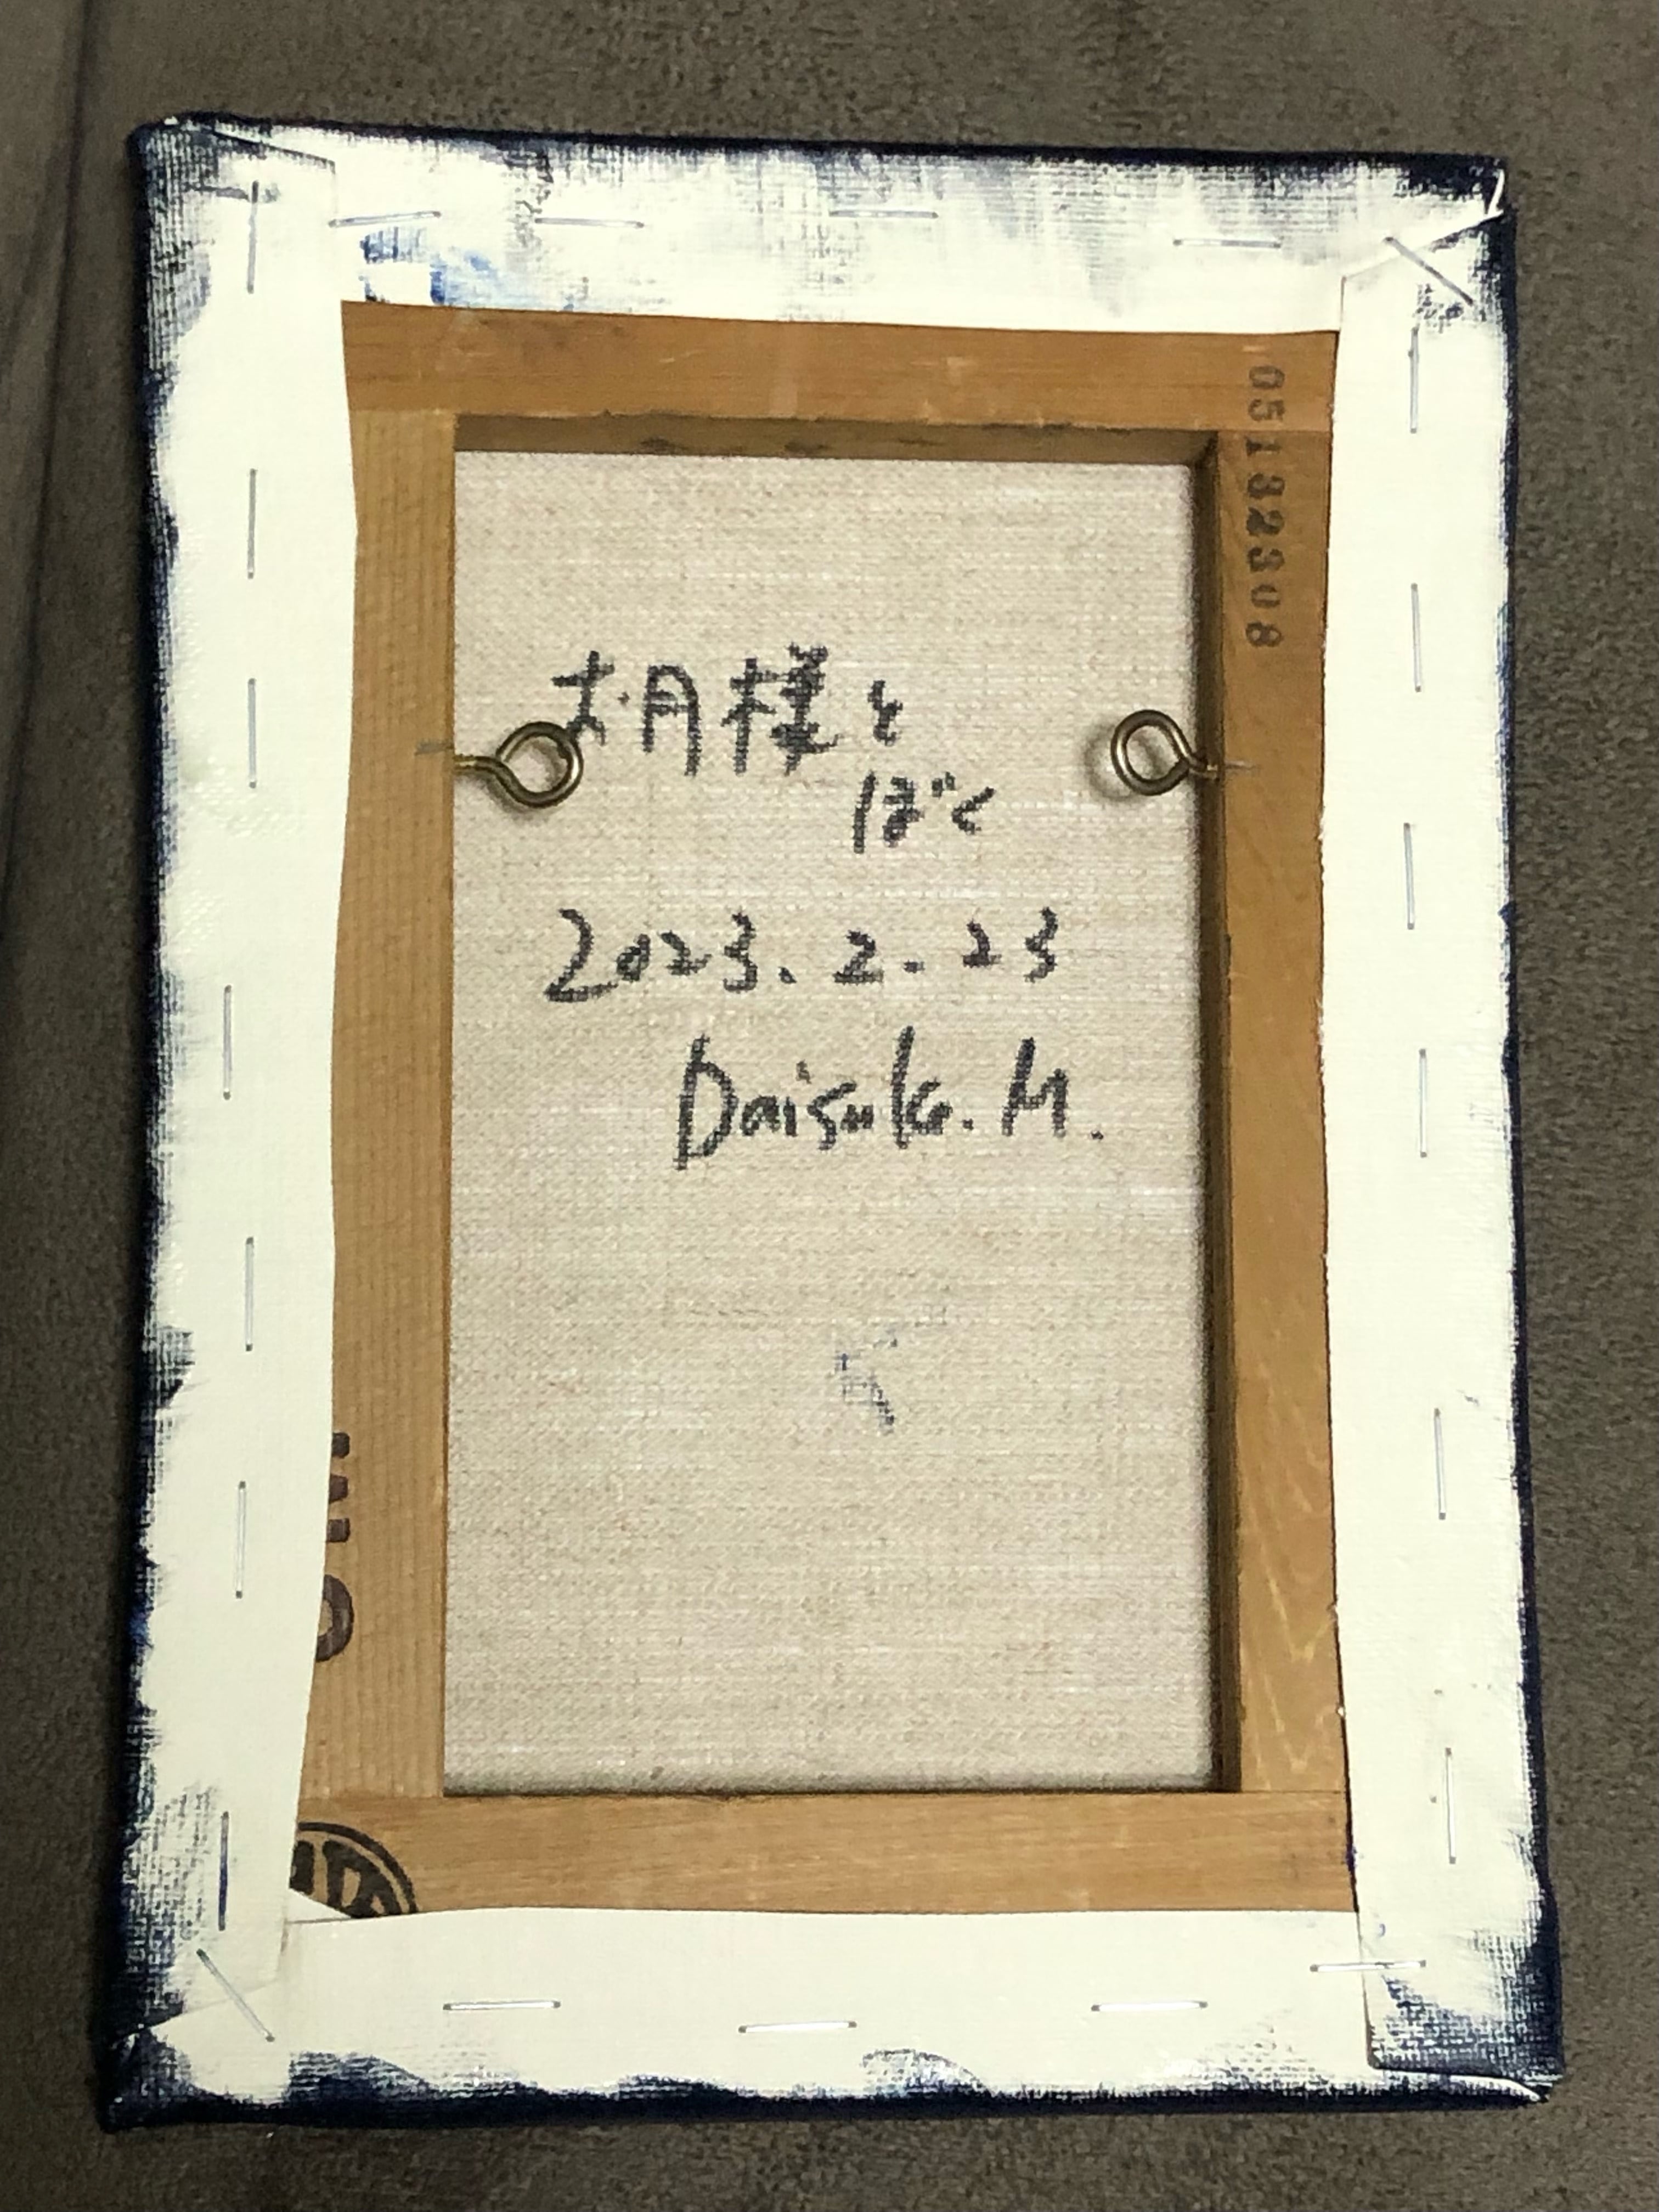 05132308
お月様と
ぼく
2023.2.23
Daisuke.M.